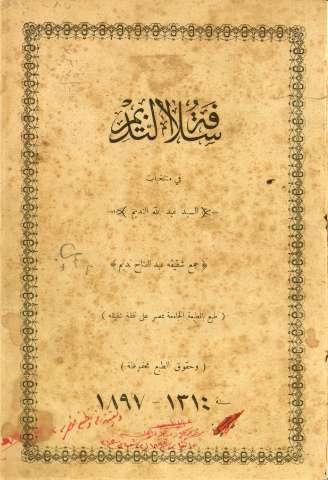 سلافة النديم
في منتخبات
السيد عبد الله النديم
﴿ جمع شقيقه عبد الفتاح نديم ﴾
( طبع بالمطبعة الجامعة بمصر على نفقة شقيقه )
( وحقوق الطبع محفوظة )
سنة ١٣١٤ - ١٨٩٧